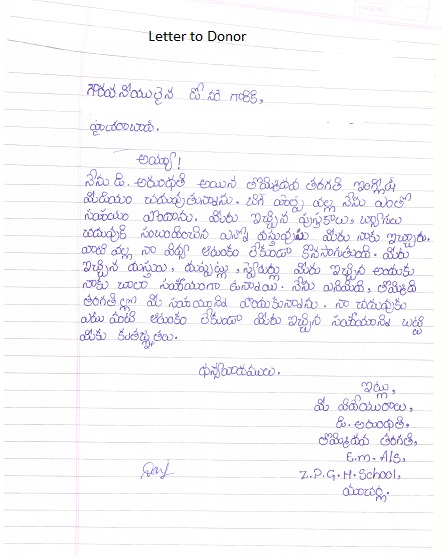 Letter to Donor
గౌరవనీయులైన డోనర్ గారికి,
హైదరాబాద్.
అయ్యా!
నేను డి. అరుంధతి అయిన తొమ్మిదవ తరగతి ఇంగ్లీష్
మీడియం చదువుతున్నాను. వల్ల నేను ఎంతో
సహాయం పొందాను. మీరు ఇచ్చిన పుస్తకాలు, బ్యాగులు
చదువుకి సంబంధించిన ఎన్నో వస్తువులు మీరు నాకు ఇచ్చారు.
వాటి వల్ల నా విద్య ఆటంకం లేకుండా కొనసాగుతుంది. మీరు
ఇచ్చిన దుస్తులు, దుప్పట్లు, స్వెటర్లు మీరు ఇచ్చిన అందుకు
నాకు చాలా సహాయంగా ఉన్నాయి. నేను ఎనిమిది, తొమ్మిది
తరగతిల్లో మీ సహాయాన్ని పొందుకున్నాను. నా చదువుకు
ఎటు వంటి ఆటంకం లేకుండా మీరు ఇచ్చిన సహాయాన్ని బట్టి
మీకు కృతజ్ఞతలు.
ధన్యవాదములు.
ఇట్లు,
మీ విధేయురాలు,
డి. అరుంధతి,
తొమ్మిదవ తరగతి,
E.m. A/s,
Z.P.G.H. School,
మాచర్ల.